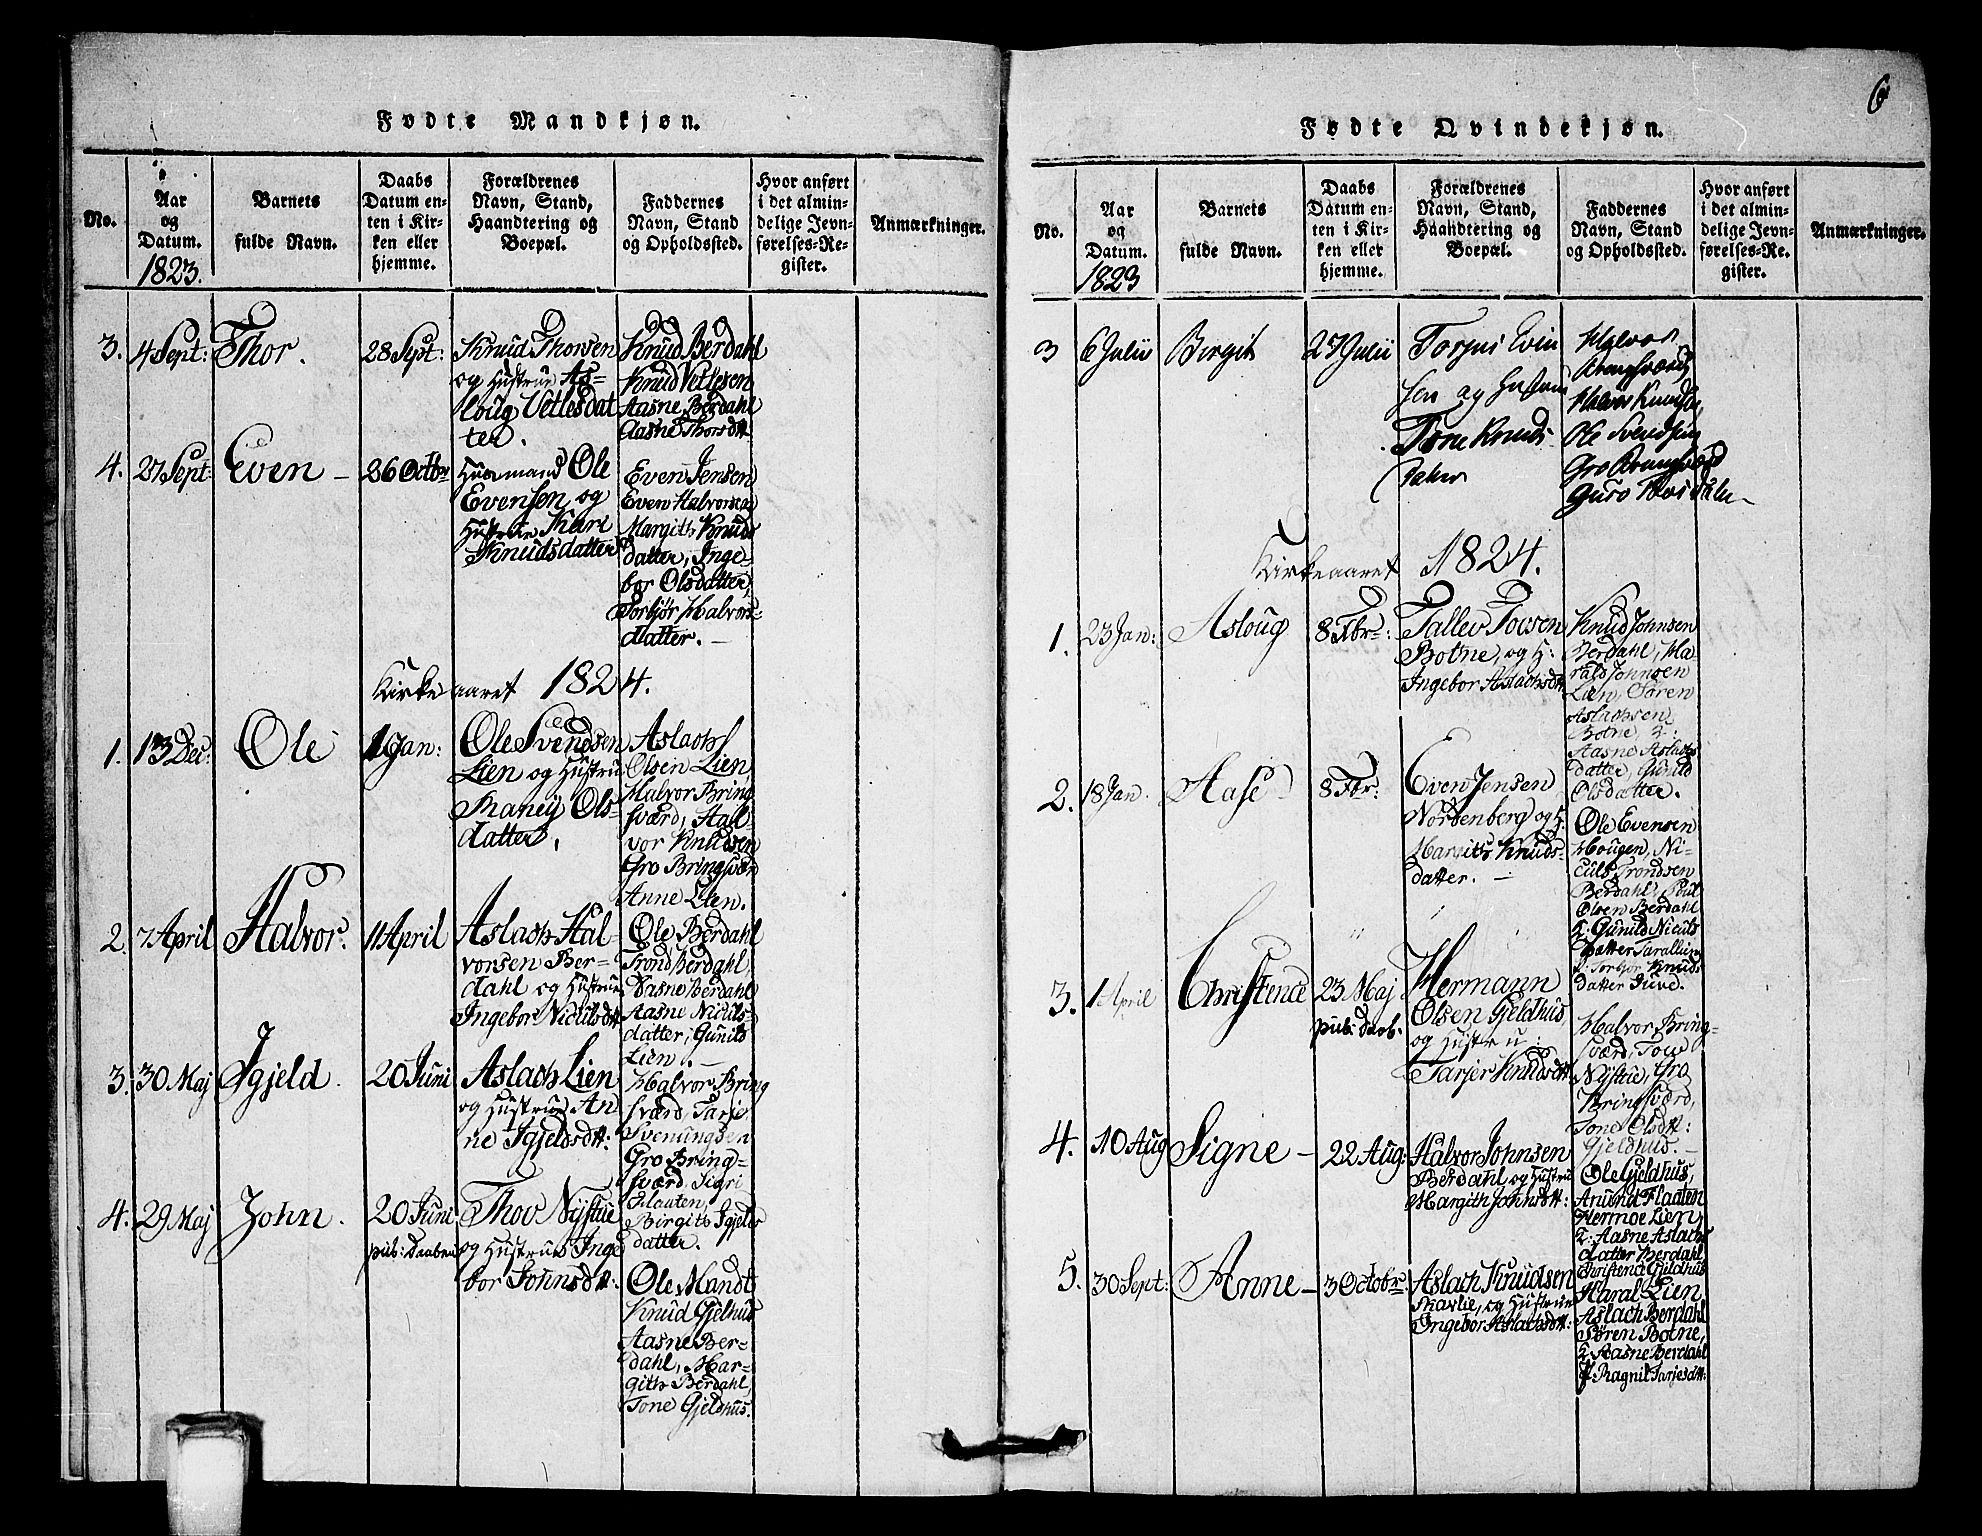 6
Fødte Mandkjøn.
No.
Aar
og
Datum.
1823.
Barnets
fulde Navn.
Daabs
Datum en-
ten i Kir-
ken eller
hjemme.
Forældrenes
Navn, Stand,
Haandtering og
Boepæl.
Faddernes
Navn, Stand
og Opholdssted.
Hvor anført
i det almin-
delige Jevn-
førelses-Re-
gister.
Anmærkninger.
3. 4 Sept: Thor. 28 Sept:
Knud Thorsen
og Hustrue As-
loug Vetlesdat
ter.
Knud Berdahl
Knud Vetlesen
Aasne Berdahl
Aasne Thorsdtt
4. 27 Sept: Even - 26 Octbr
Huusmand Ole
Evensen og
Hustrue Kari
Knudsdatter
Even Jensen
Even Halvorsen
Margith Knuds
datter, Inge-
bor Olsdatter,
Torbjør Halvors-
datter. -
Kirkeaaret 1824.
1. 13 Dec: Ole 1 Jan:
Ole Svendsen
Lien og Hustru
Ols-
datter.
Aslach
Olsen Lien,
Halvor Bring
sværd, Hal-
vor Knudsen
Gro Bringsværd
Anne Lien.
2. 7 April Halvor. 11 April
Aslach Hal-
vorsen Ber-
dahl og Hustrue
Ingebor Niculsdtt
Ole Berdahl
Trond Berdahl,
Aasne Berdahl
Aasne Niculs-
datter, Gunild
Lien. -
3. 30 Maj Igjeld. 20 Juni
Aslach Lien
og Hustrue An
ne Igjeldsdtt:
Halvor Bring
sværd, Tarje
Svenungsen
Gro Bring-
sværd, Sigri
Flaaten,
Birgith Igjelds
datter.
4. 29 Maj John. 20 Juni
pub: Daaben
Thov Nystue
og Hustrue Inge
bor Johnsdtt:
Ole Mandt
Knud Gjelhus
Aasne Ber-
dahl, Mar-
gith Berdahl,
Tone Gjeldhus.
Fødte Qvindekjøn.
No.
Aar
og
Datum.
1823
Barnets
fulde Navn.
Daabs
Datum en-
ten i Kir-
ken eller
hjemme.
Forældrenes
Navn, Stand,
Haandtering og
Boepæl.
Faddernes
Navn, Stand
og Opholdssted.
Hvor anført
i det almin-
delige Jevn-
førelses-Re-
gister.
Anmærkninger.
3 6 Julii Birgit 27 Julii
Torjus Evin
sen og Hustrue
Tone Knuds
datter
Halvor
Bringsværd
Halvor Knudsen,
Ole Svendsen
Gro Bringsværd
Guro
Kirkeaaret 1824.
1. 23 Jan: Asloug 8 Fbr:
Tallev Tovsen
Botne, og H:
Ingebor Aslachsdtt
Knud Johnsen
Berdahl, Ha-
rald Johnsen
Lien, Søren
Aslachsen
Botne, 2:
Aasne Aslachs
datter, Gunild
Olsdatter.
2. 18 Jan. Aase - 8 Fbr:
Even Jensen
Nordenberg og H:
Margith Knuds-
datter. -
Ole Evensen
Hougen, Ni-
culs Trondsen
Berdahl, Poul
Olsen Berdahl
2: Gunild Niculs
datter
Torbjør Knuds
datter Juvd.
3. 1 April Christence 23 Maj
pub: Daab.
Hermann
Olsen Gjeldhus,
og Hustru:
Tarjer Knudsdtt
Halvor Bring-
sværd, Tow
Nystue, Gro
Bringsværd,
Tone Olsdtt:
Gjeldhus. -
4. 10 Aug Signe - 22 Aug:
Halvor Johnsen
Berdahl, og Hustrue
Margith Johnsdtt:
Ole Gjeldhus,
Anund Flaaten
Hermoe Lien,
2: Aasne Aslachs
datter Berdahl,
Christence Gjeldhus
5. 30 Sept: Anne - 3 Octobr
Aslach Knudsen
Skavlie, og Hustrue
Ingebor Aslachsdtt:
Haral Lien
Aslach Berdahl
Søren Botne,
2 Aasne Berdahl
P. Ragnil Tarjesdtt: